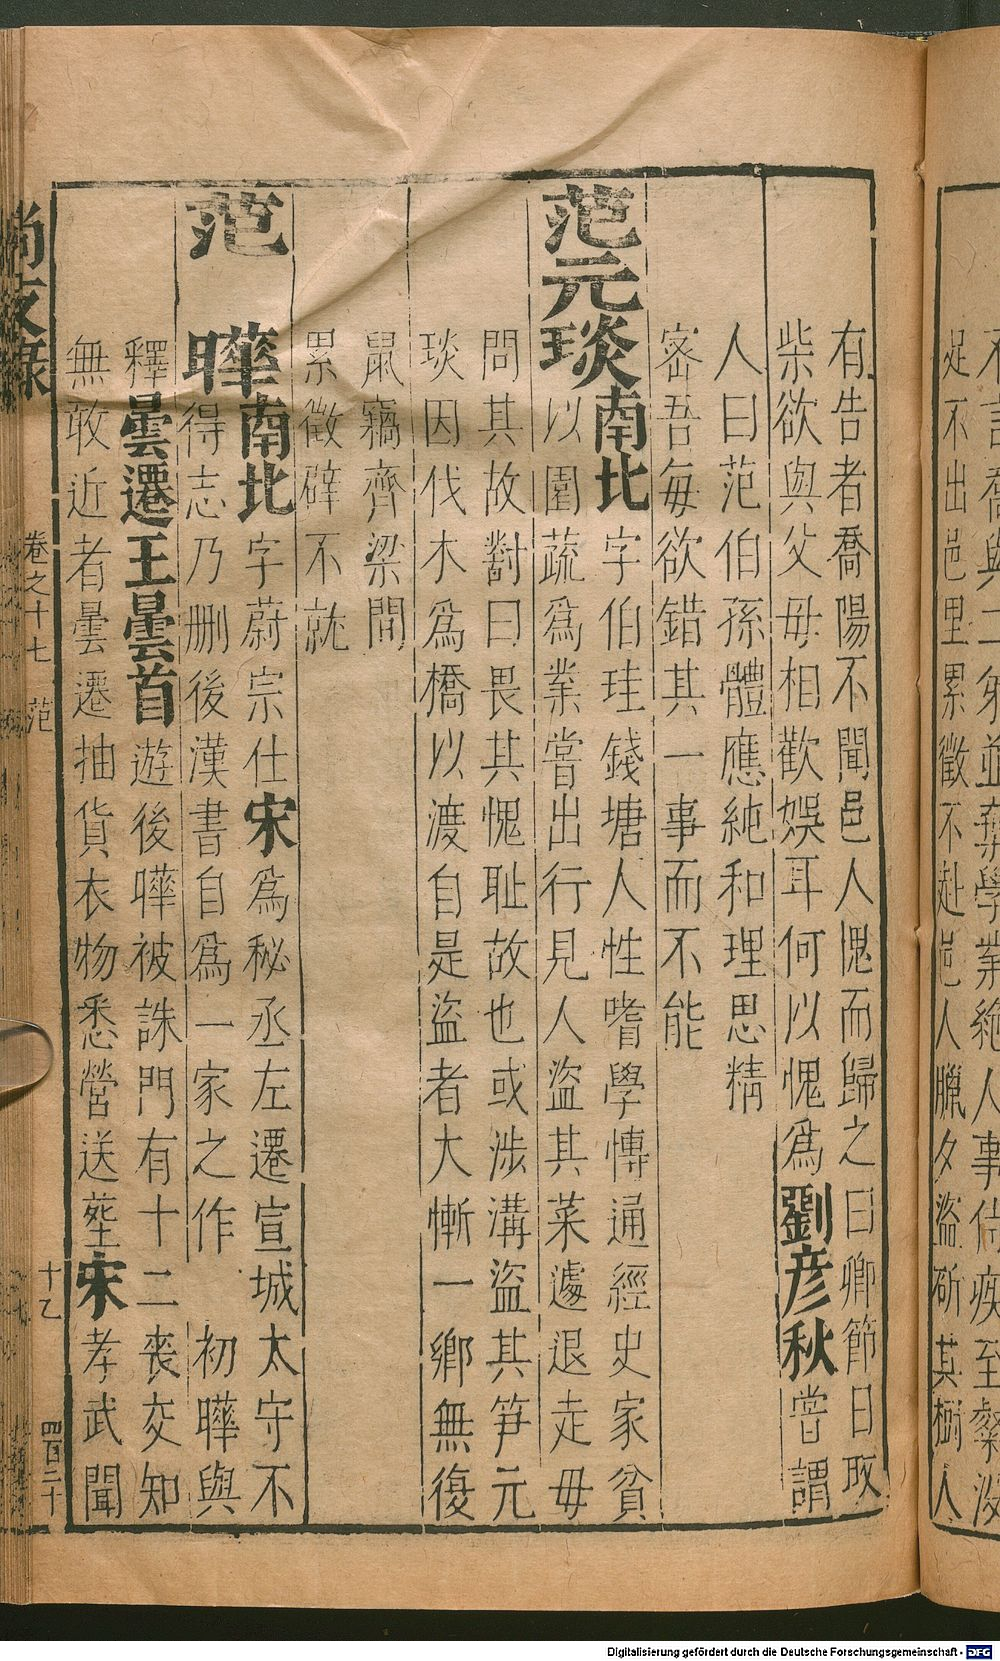 不言喬與二弟並棄學業絶人事侍疾至粲沒
足不出邑里累徵不赴邑人臘夕盜斫其樹人
有告者喬陽不聞邑人愧而歸之曰卿節日取
柴欲與父母相歡娛耳何以愧爲劉彦秋嘗謂
人曰范伯孫體應純和理思精
宻吾每欲錯其一事而不能
范元琰南北字伯珪錢塘人性嗜學愽通經史家貧
以園蔬爲業嘗出行見人盜其菜遽退走毋
問其故對曰畏其愧耻故也或涉溝盜其笋元
琰因伐木爲橋以渡自是盜者大慚一鄉無復
鼠竊齊梁間
累徵辟不就
范曄南北字蔚宗仕宋爲秘丞左遷宣城太守不
得志乃刪後漢書自爲一家之作 初曄與
釋曇遷王曇首遊後曄被誅門有十二喪交知
無敢近者曇遷抽貨衣物悉營送塟宋孝武聞
尚友錄 卷之十七 范 十乙 四百二十
Digitalisierung gefördert durch die Deutsche Forschungsgemeinschaft - DFG